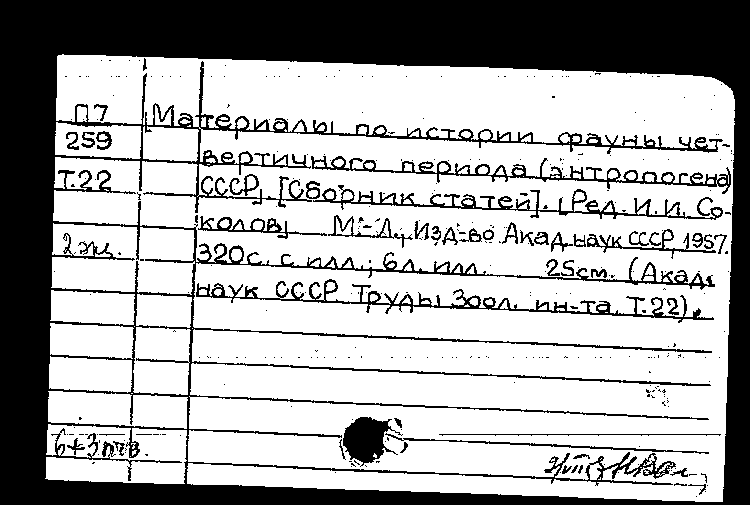 П7 [Материалы по истории фауны чет-
259 вертичного периода (антропогена)
Т.22 СССР]. [Сборник статей]. [Ред. И.И. Со-
колов] М.-Л., Изд-во Акад. наук СССР, 1957.
2 экз. 320с. с илл.; 6л. илл. 25см. (Акад.
наук СССР. Труды Зоол. ин-та. Т.22).
6+3